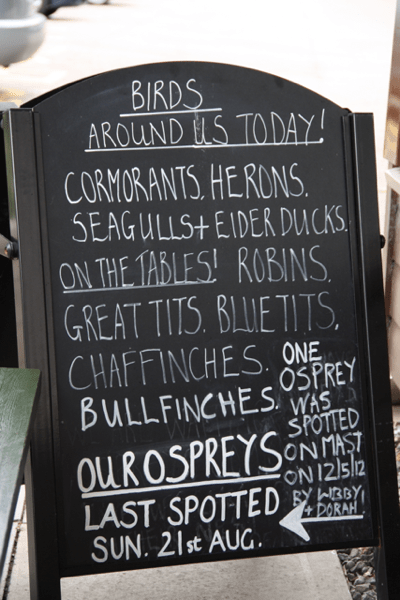 BIRDS
AROUND US TODAY!
CORMORANTS. HERONS.
SEAGULLS + EIDER DUCKS.
ON THE TABLES! ROBINS.
GREAT TITS. BLUE TITS.
CHAFFINCHES.
BULLFINCHES.
OUR OSPREYS
LAST SPOTTED
SUN. 21st AUG.
ONE
OSPREY
WAS
SPOTTED
ON MAST
ON 12/5/12
BY LIBBY
+ DORAH!